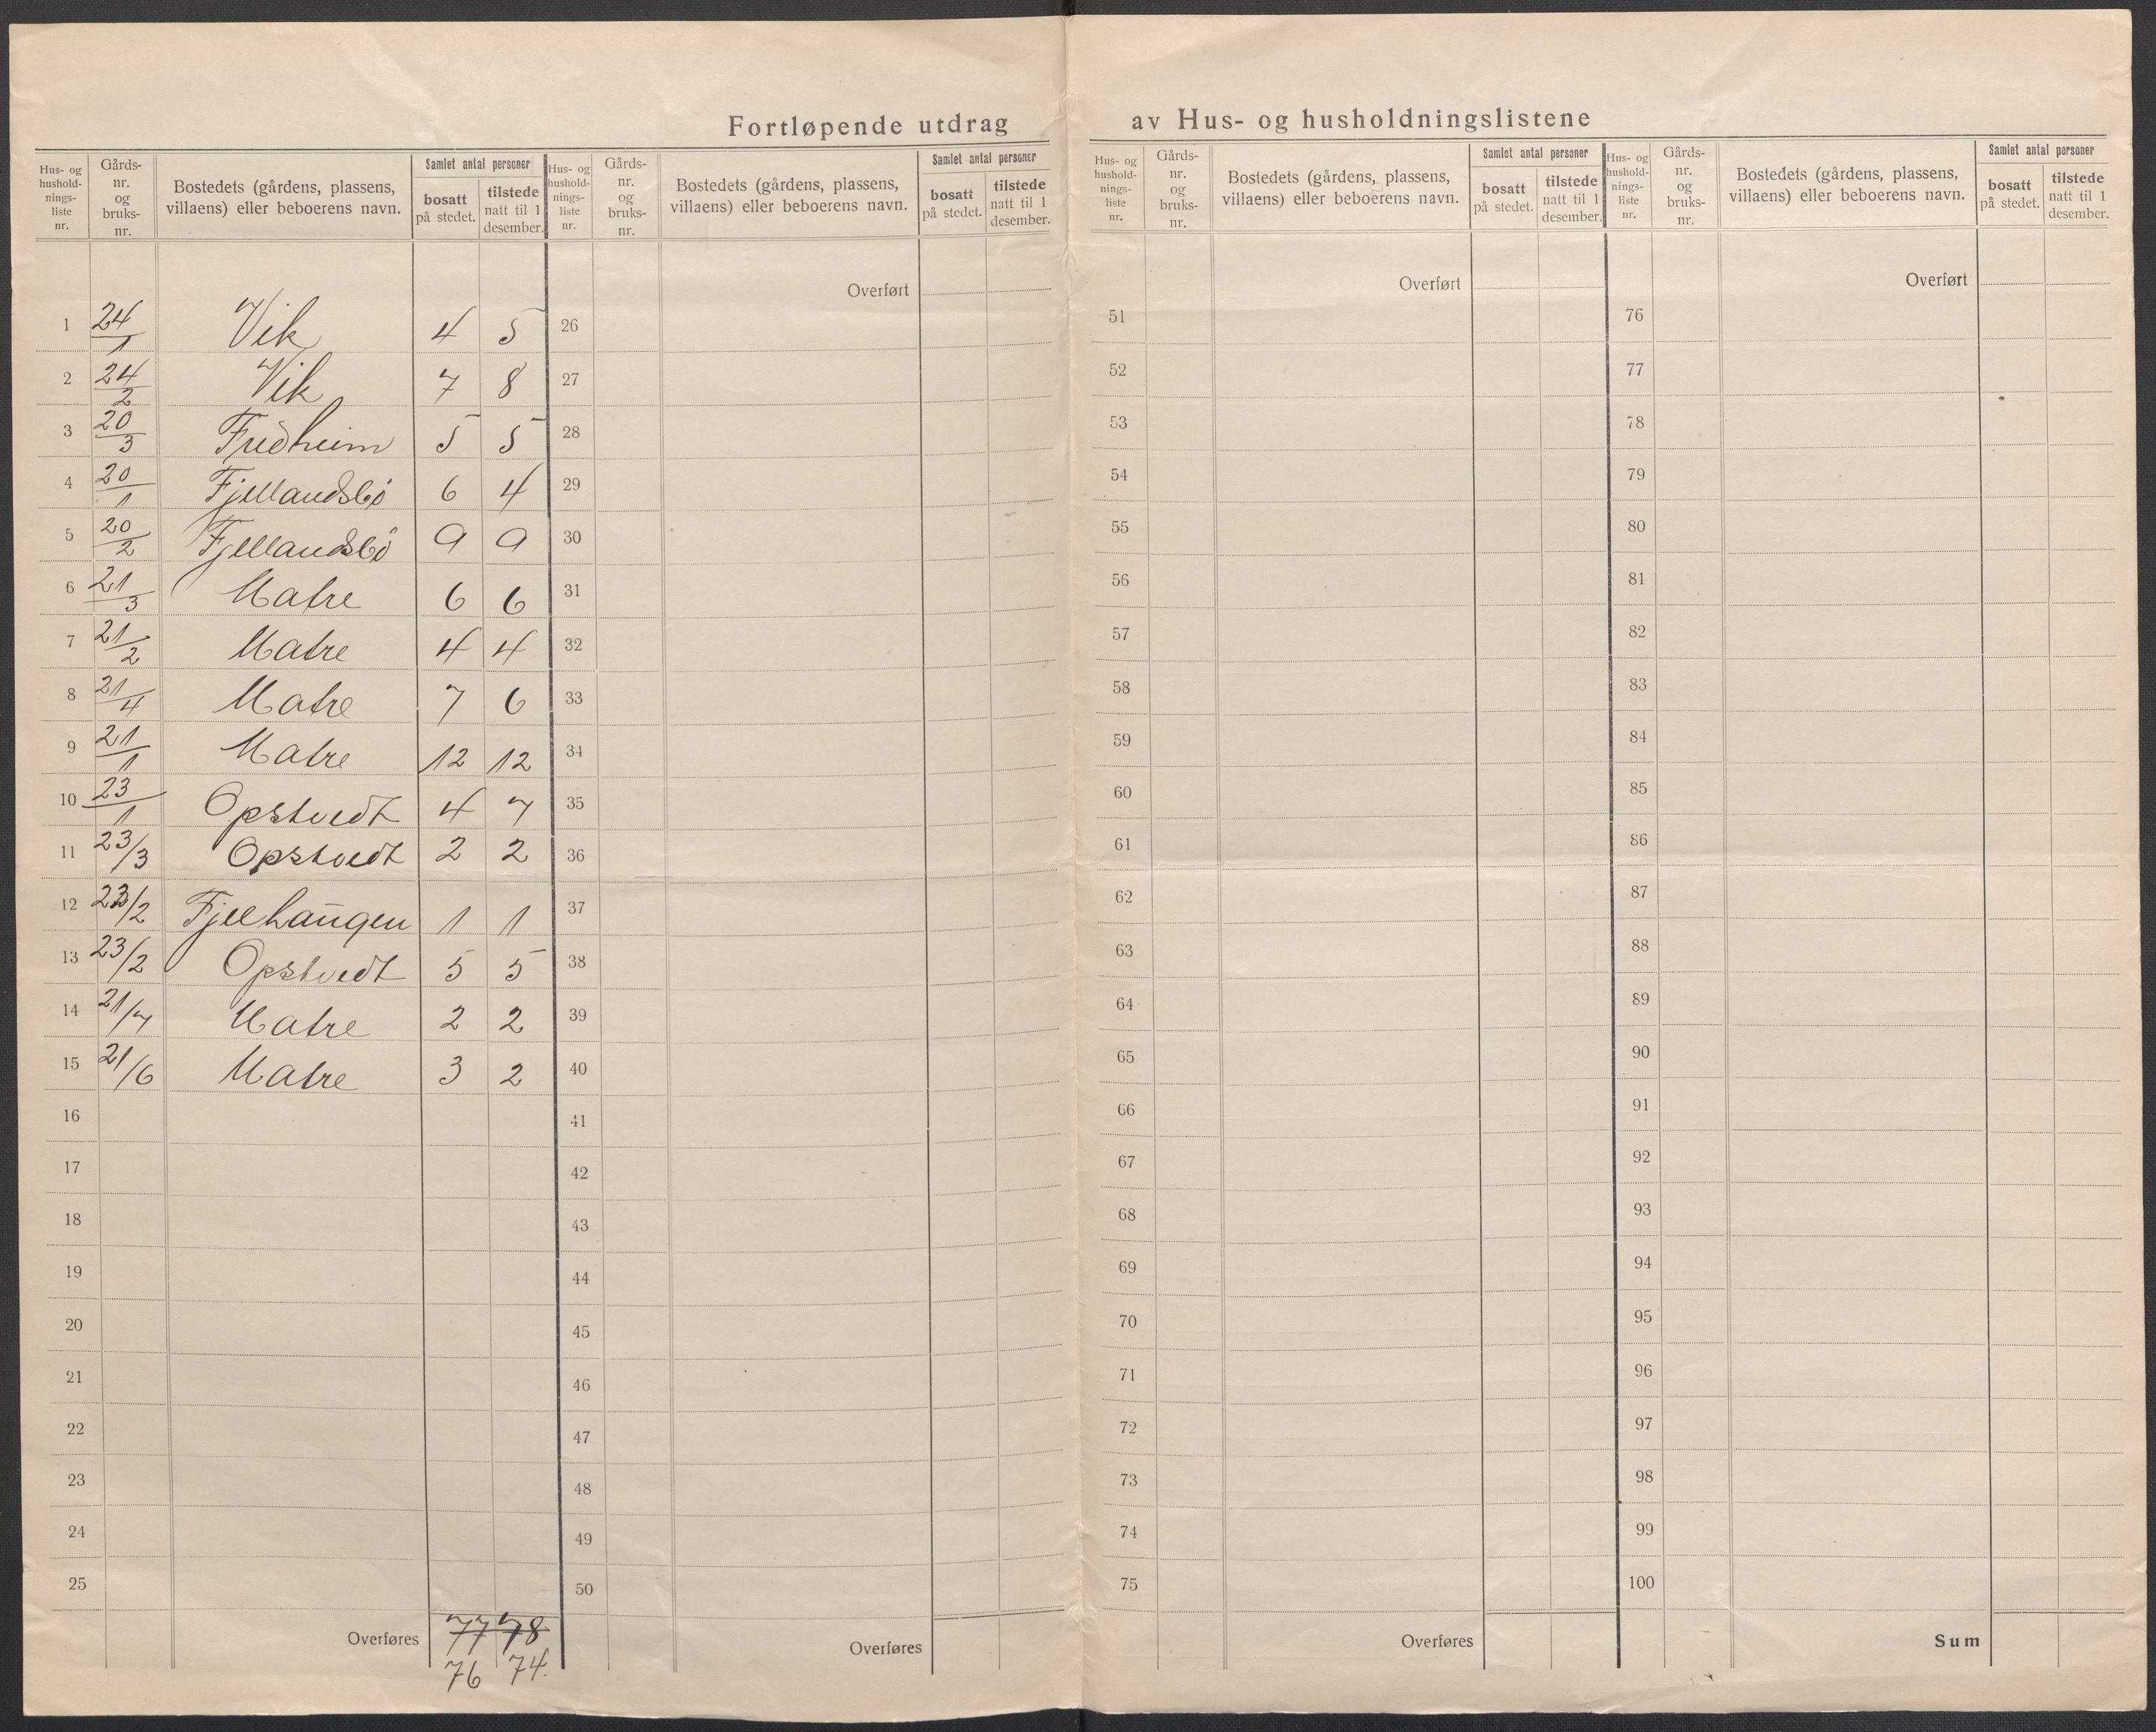 Fortløpende utdrag av Hus- og husholdningslistene
Hus- og hushold- nings- liste nr. | Gårds- nr. og bruks- nr. | Bostedets (gårdens, plassens, villaens) eller beboerens navn. | Samlet antal personer bosatt på stedet. | tilstede natt til 1 desember.
1 24/1 Vik 4 5
2 24/2 Vik 7 8
3 20/3 Fredheim 5 5
4 20/1 Fjellandsbö 6 4
5 20/2 Fjellandsbö 9 9
6 21/3 Matre 6 6
7 21/2 Matre 4 4
8 21/4 Matre 7 6
9 21/1 Matre 12 12
10 23/1 Opstvedt 4 7
11 23/3 Opstvedt 2 2
12 23/2 Fjelhaugen 1 1
13 23/2 Opstvedt 5 5
14 21/7 Matre 2 2
15 21/6 Matre 3 2
16
17
18
19
20
21
22
23
24
25
Overføres 77 78
76 74.
Hus- og hushold- nings- liste nr. | Gårds- nr. og bruks- nr. | Bostedets (gårdens, plassens, villaens) eller beboerens navn. | Samlet antal personer bosatt på stedet. | tilstede natt til 1 desember.
Overført
26
27
28
29
30
31
32
33
34
35
36
37
38
39
40
41
42
43
44
45
46
47
48
49
50
Overføres
Hus- og hushold- nings- liste nr. | Gårds- nr. og bruks- nr. | Bostedets (gårdens, plassens, villaens) eller beboerens navn. | Samlet antal personer bosatt på stedet. | tilstede natt til 1 desember.
Overført
51
52
53
54
55
56
57
58
59
60
61
62
63
64
65
66
67
68
69
70
71
72
73
74
75
Overføres
Hus- og hushold- nings- liste nr. | Gårds- nr. og bruks- nr. | Bostedets (gårdens, plassens, villaens) eller beboerens navn. | Samlet antal personer bosatt på stedet. | tilstede natt til 1 desember.
Overført
76
77
78
79
80
81
82
83
84
85
86
87
88
89
90
91
92
93
94
95
96
97
98
99
100
Sum